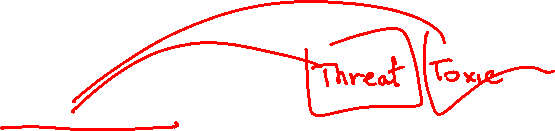 Threat Toxic